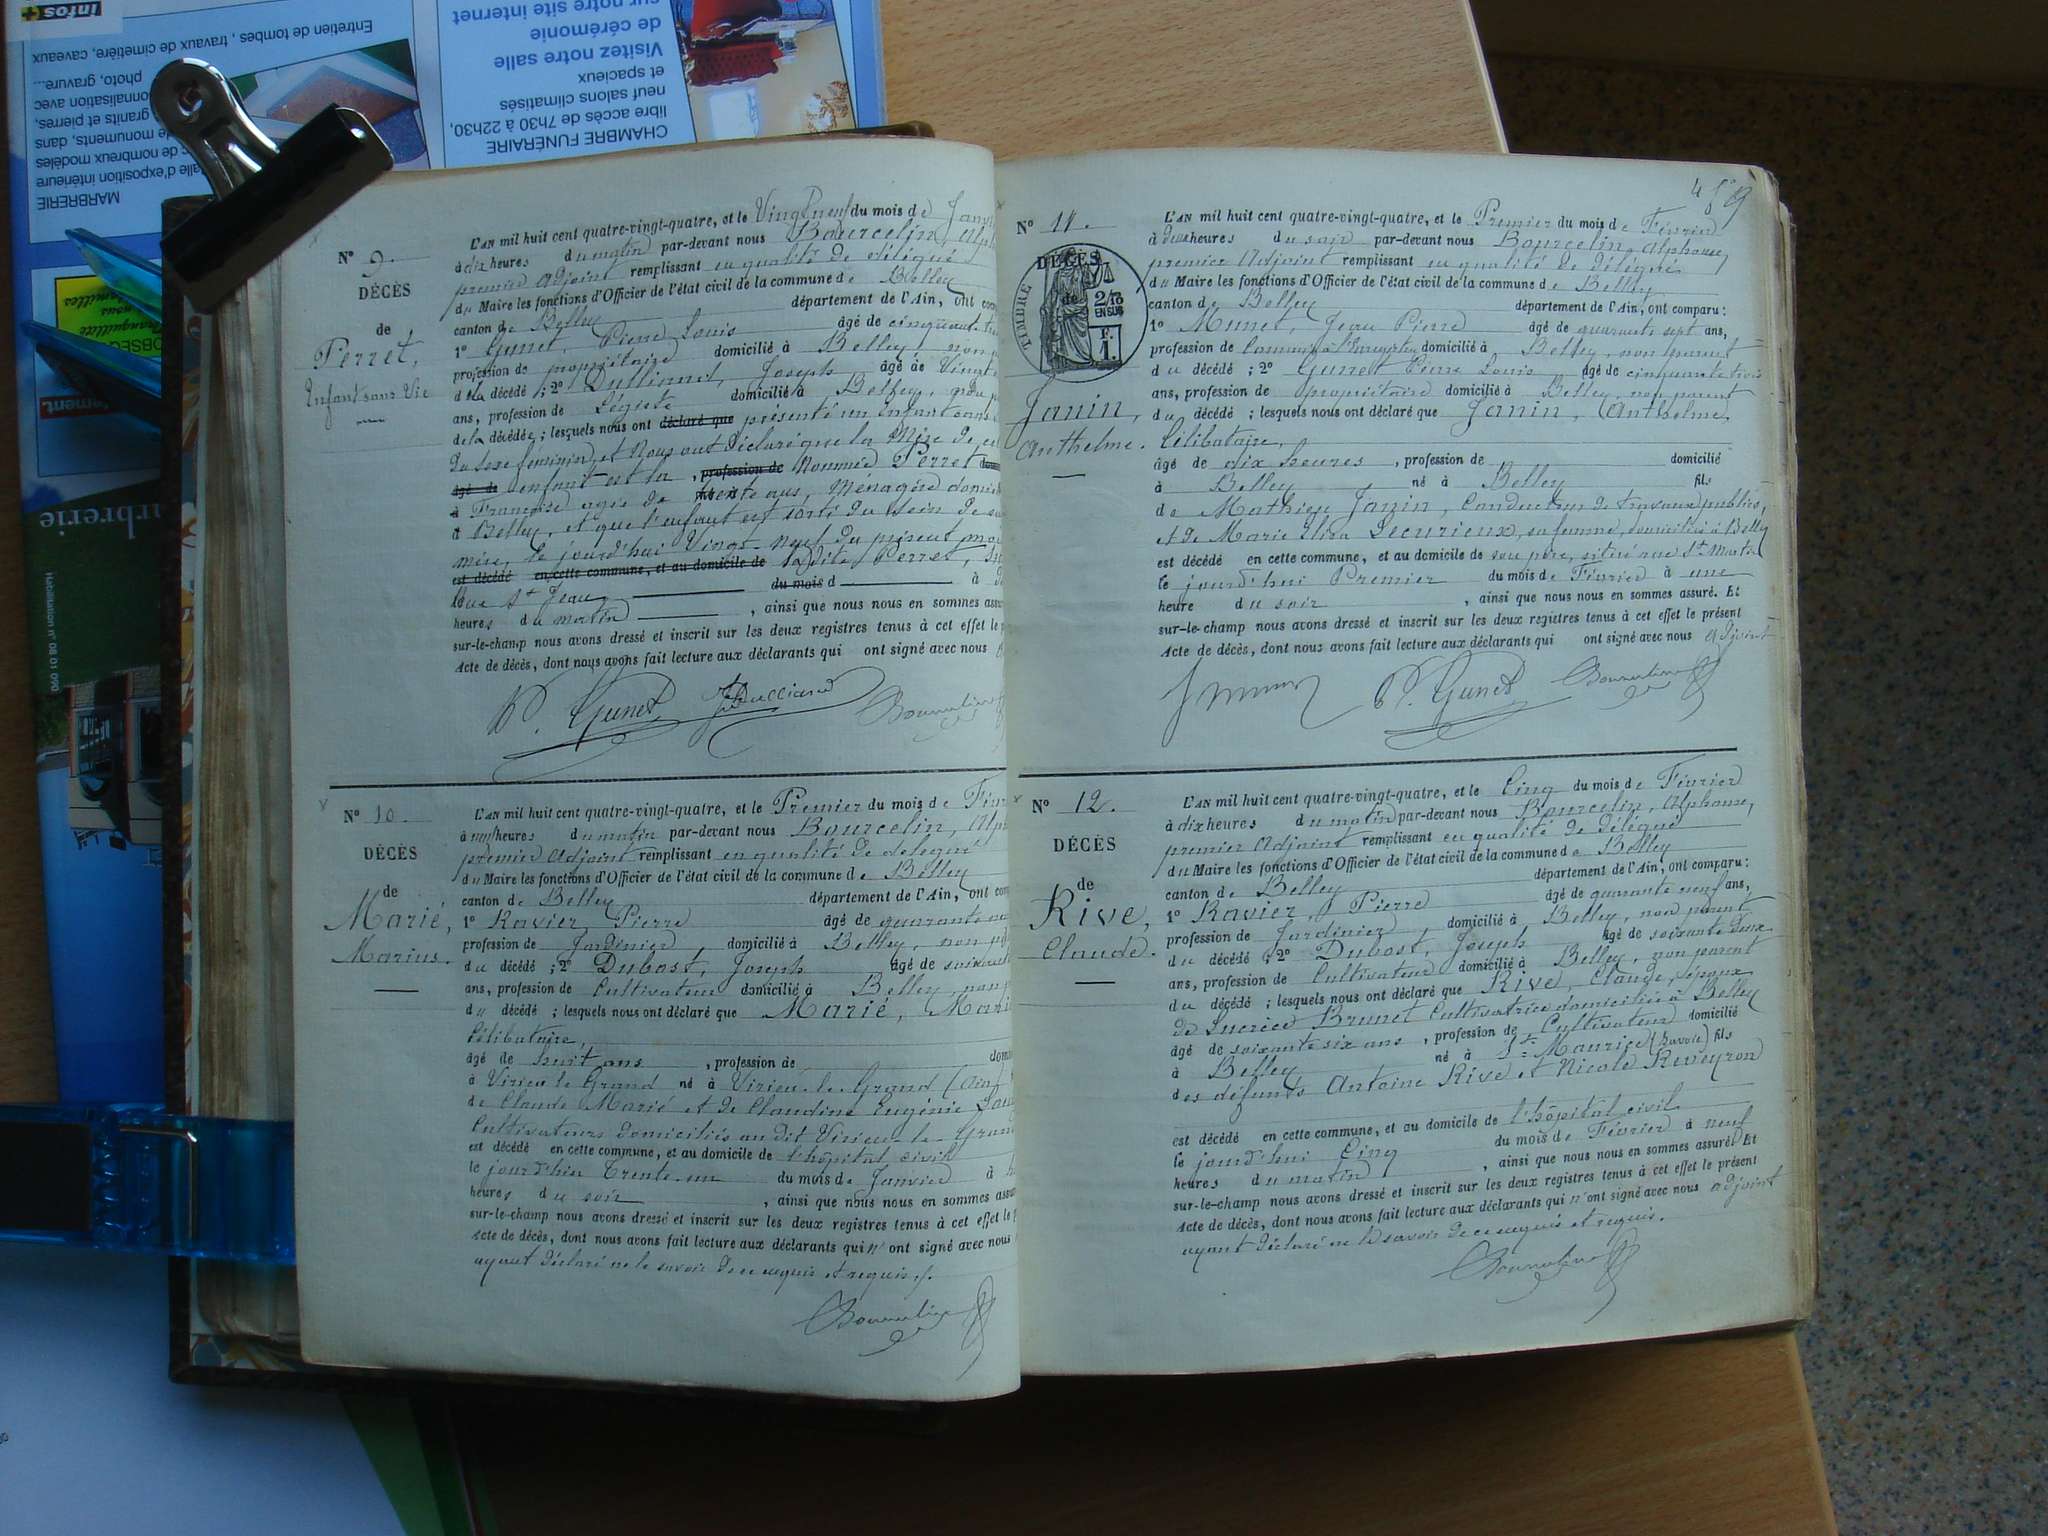 Infos+
Entretien de tombes, travaux de cimetière, caveaux
photo, gravure...
MARBRERIE
CHAMBRE FUNÉRAIRE
libre accès de 7h30 à 22h30,
neuf salons climatisés
et spacieux
Visitez notre salle
de cérémonie
sur notre site internet
Habilitation n° 08 01 090
N° 9.
DÉCÈS
de
Perret,
Enfant sans Vie
L'AN mil huit cent quatre-vingt-quatre, et le Vingt neuf du mois de
à dix heures du matin par-devant nous Bourcelin,
premier Adjoint remplissant en qualité de délégué
du Maire les fonctions d'Officier de l'état civil de la commune de Belley
canton de Belley département de l'Ain, ont
1° Gunet, Pierre Louis âgé de cinquante
profession de propriétaire domicilié à Belley, non
de la décédé ; 2° Joseph, âgé de Vingt
ans, profession de Légiste domicilié à Belley,
de la décédée ; lesquels nous ont déclaré que présenté un enfant sans
du sexe féminin et nous ont déclaré que la Mère de cet
âgé de enfant est la , profession de nommée Perret
à Françoise agée de trente ans, Ménagère
à Belley, et que l'enfant est sorti du sein de sa
mère, le jourd'hui Vingt-neuf du présent
est décédé en cette commune, et au domicile de ladite Perret,
Rue St Jean, du mois d à
heures du matin , ainsi que nous nous en sommes
sur-le-champ nous avons dressé et inscrit sur les deux registres tenus à cet effet le
Acte de décès, dont nous avons fait lecture aux déclarants qui ont signé avec nous
P. Gunet
N° 10.
DÉCÈS
de
Marié,
Marius.
L'AN mil huit cent quatre-vingt-quatre, et le Premier du mois de
à neuf heures du matin par-devant nous Bourcelin,
premier Adjoint remplissant en qualité de délégué
du Maire les fonctions d'Officier de l'état civil de la commune de Belley
canton de Belley département de l'Ain, ont
1° Ravier, Pierre âgé de quarante
profession de Jardinier, domicilié à Belley, non
du décédé ; 2° Dubost, Joseph âgé de
ans, profession de Cultivateur domicilié à Belley, non
du décédé ; lesquels nous ont déclaré que Marié,
Célibataire,
âgé de huit ans , profession de
à Virieu le Grand né à Virieu-le-Grand (Ain)
de Claude Marié et de Claudine Eugénie
Cultivateurs domiciliés au dit Virieu-le-Grand
est décédé en cette commune, et au domicile de l'hôpital civil
le jourd'hier Trente-un du mois de Janvier à
heures du soir , ainsi que nous nous en sommes
sur-le-champ nous avons dressé et inscrit sur les deux registres tenus à cet effet le
Acte de décès, dont nous avons fait lecture aux déclarants qui n'ont signé avec nous
ayant déclaré ne le savoir de ce enquis et requis.
459
N° 11.
DÉCÈS
de
TIMBRE
2/10
EN SUS
1 F.
Janin,
Anthelme.
L'AN mil huit cent quatre-vingt-quatre, et le Premier du mois de Février
à deux heures du soir par-devant nous Bourcelin, Alphonse,
premier Adjoint remplissant en qualité de délégué
du Maire les fonctions d'Officier de l'état civil de la commune de Belley
canton de Belley département de l'Ain, ont comparu :
1° Munet, Jean Pierre âgé de quarante sept ans,
profession de domicilié à Belley, non parent
du décédé ; 2° Gunet Pierre Louis âgé de cinquante trois
ans, profession de propriétaire domicilié à Belley, non parent
du décédé ; lesquels nous ont déclaré que Janin, Anthelme,
Célibataire,
âgé de dix heures , profession de domicilié
à Belley né à Belley fils
de Mathieu Janin, Conducteur de travaux publics,
et de Marie Eliza Lecurieux, sa femme, domiciliés à Belley
est décédé en cette commune, et au domicile de son père, situé rue St Martin
le jourd'hui Premier du mois de Février à une
heure du soir , ainsi que nous nous en sommes assuré. Et
sur-le-champ nous avons dressé et inscrit sur les deux registres tenus à cet effet le présent
Acte de décès, dont nous avons fait lecture aux déclarants qui ont signé avec nous adjoint
P. Gunet
N° 12.
DÉCÈS
de
Rive,
Claude.
L'AN mil huit cent quatre-vingt-quatre, et le Cinq du mois de Février
à dix heures du matin par-devant nous Bourcelin, Alphonse,
premier Adjoint remplissant en qualité de délégué
du Maire les fonctions d'Officier de l'état civil de la commune de Belley
canton de Belley département de l'Ain, ont comparu :
1° Ravier, Pierre âgé de quarante neuf ans,
profession de Jardinier, domicilié à Belley, non parent
du décédé ; 2° Dubost, Joseph âgé de soixante deux
ans, profession de Cultivateur domicilié à Belley, non parent
du décédé ; lesquels nous ont déclaré que Rive, Claude, époux
de Lucrèce Brunet Cultivatrice domiciliée à Belley
âgé de soixante six ans , profession de Cultivateur domicilié
à Belley né à St Maurice (Savoie) fils
des défunts Antoine Rive et Nicole Reveyron
est décédé en cette commune, et au domicile de l'hôpital civil
le jourd'hui Cinq du mois de Février à neuf
heures du matin , ainsi que nous nous en sommes assuré. Et
sur-le-champ nous avons dressé et inscrit sur les deux registres tenus à cet effet le présent
Acte de décès, dont nous avons fait lecture aux déclarants qui n'ont signé avec nous adjoint
ayant déclaré ne le savoir de ce enquis et requis.